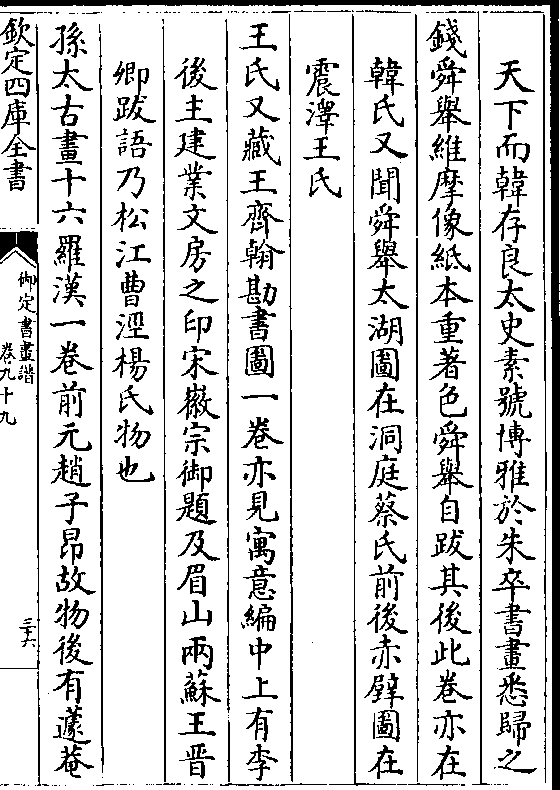 天下而韓存良太史素號博雅於朱卒書畫悉歸之
錢舜舉維摩像紙本重著色舜舉自跋其後此卷亦在
韓氏又聞舜舉太湖圖在洞庭蔡氏前後赤壁圖在
震澤王氏
王氏又藏王齊翰勘書圖一卷亦見寓意編中上有李
後主建業文房之印宋徽宗御題及眉山兩蘇王晋
卿跋語乃松江曹涇楊氏物也
孫太古畫十六羅漢一卷前元趙子昂故物後有蘧菴
欽定四庫全書
御定書畫譜
卷九十九
三十六